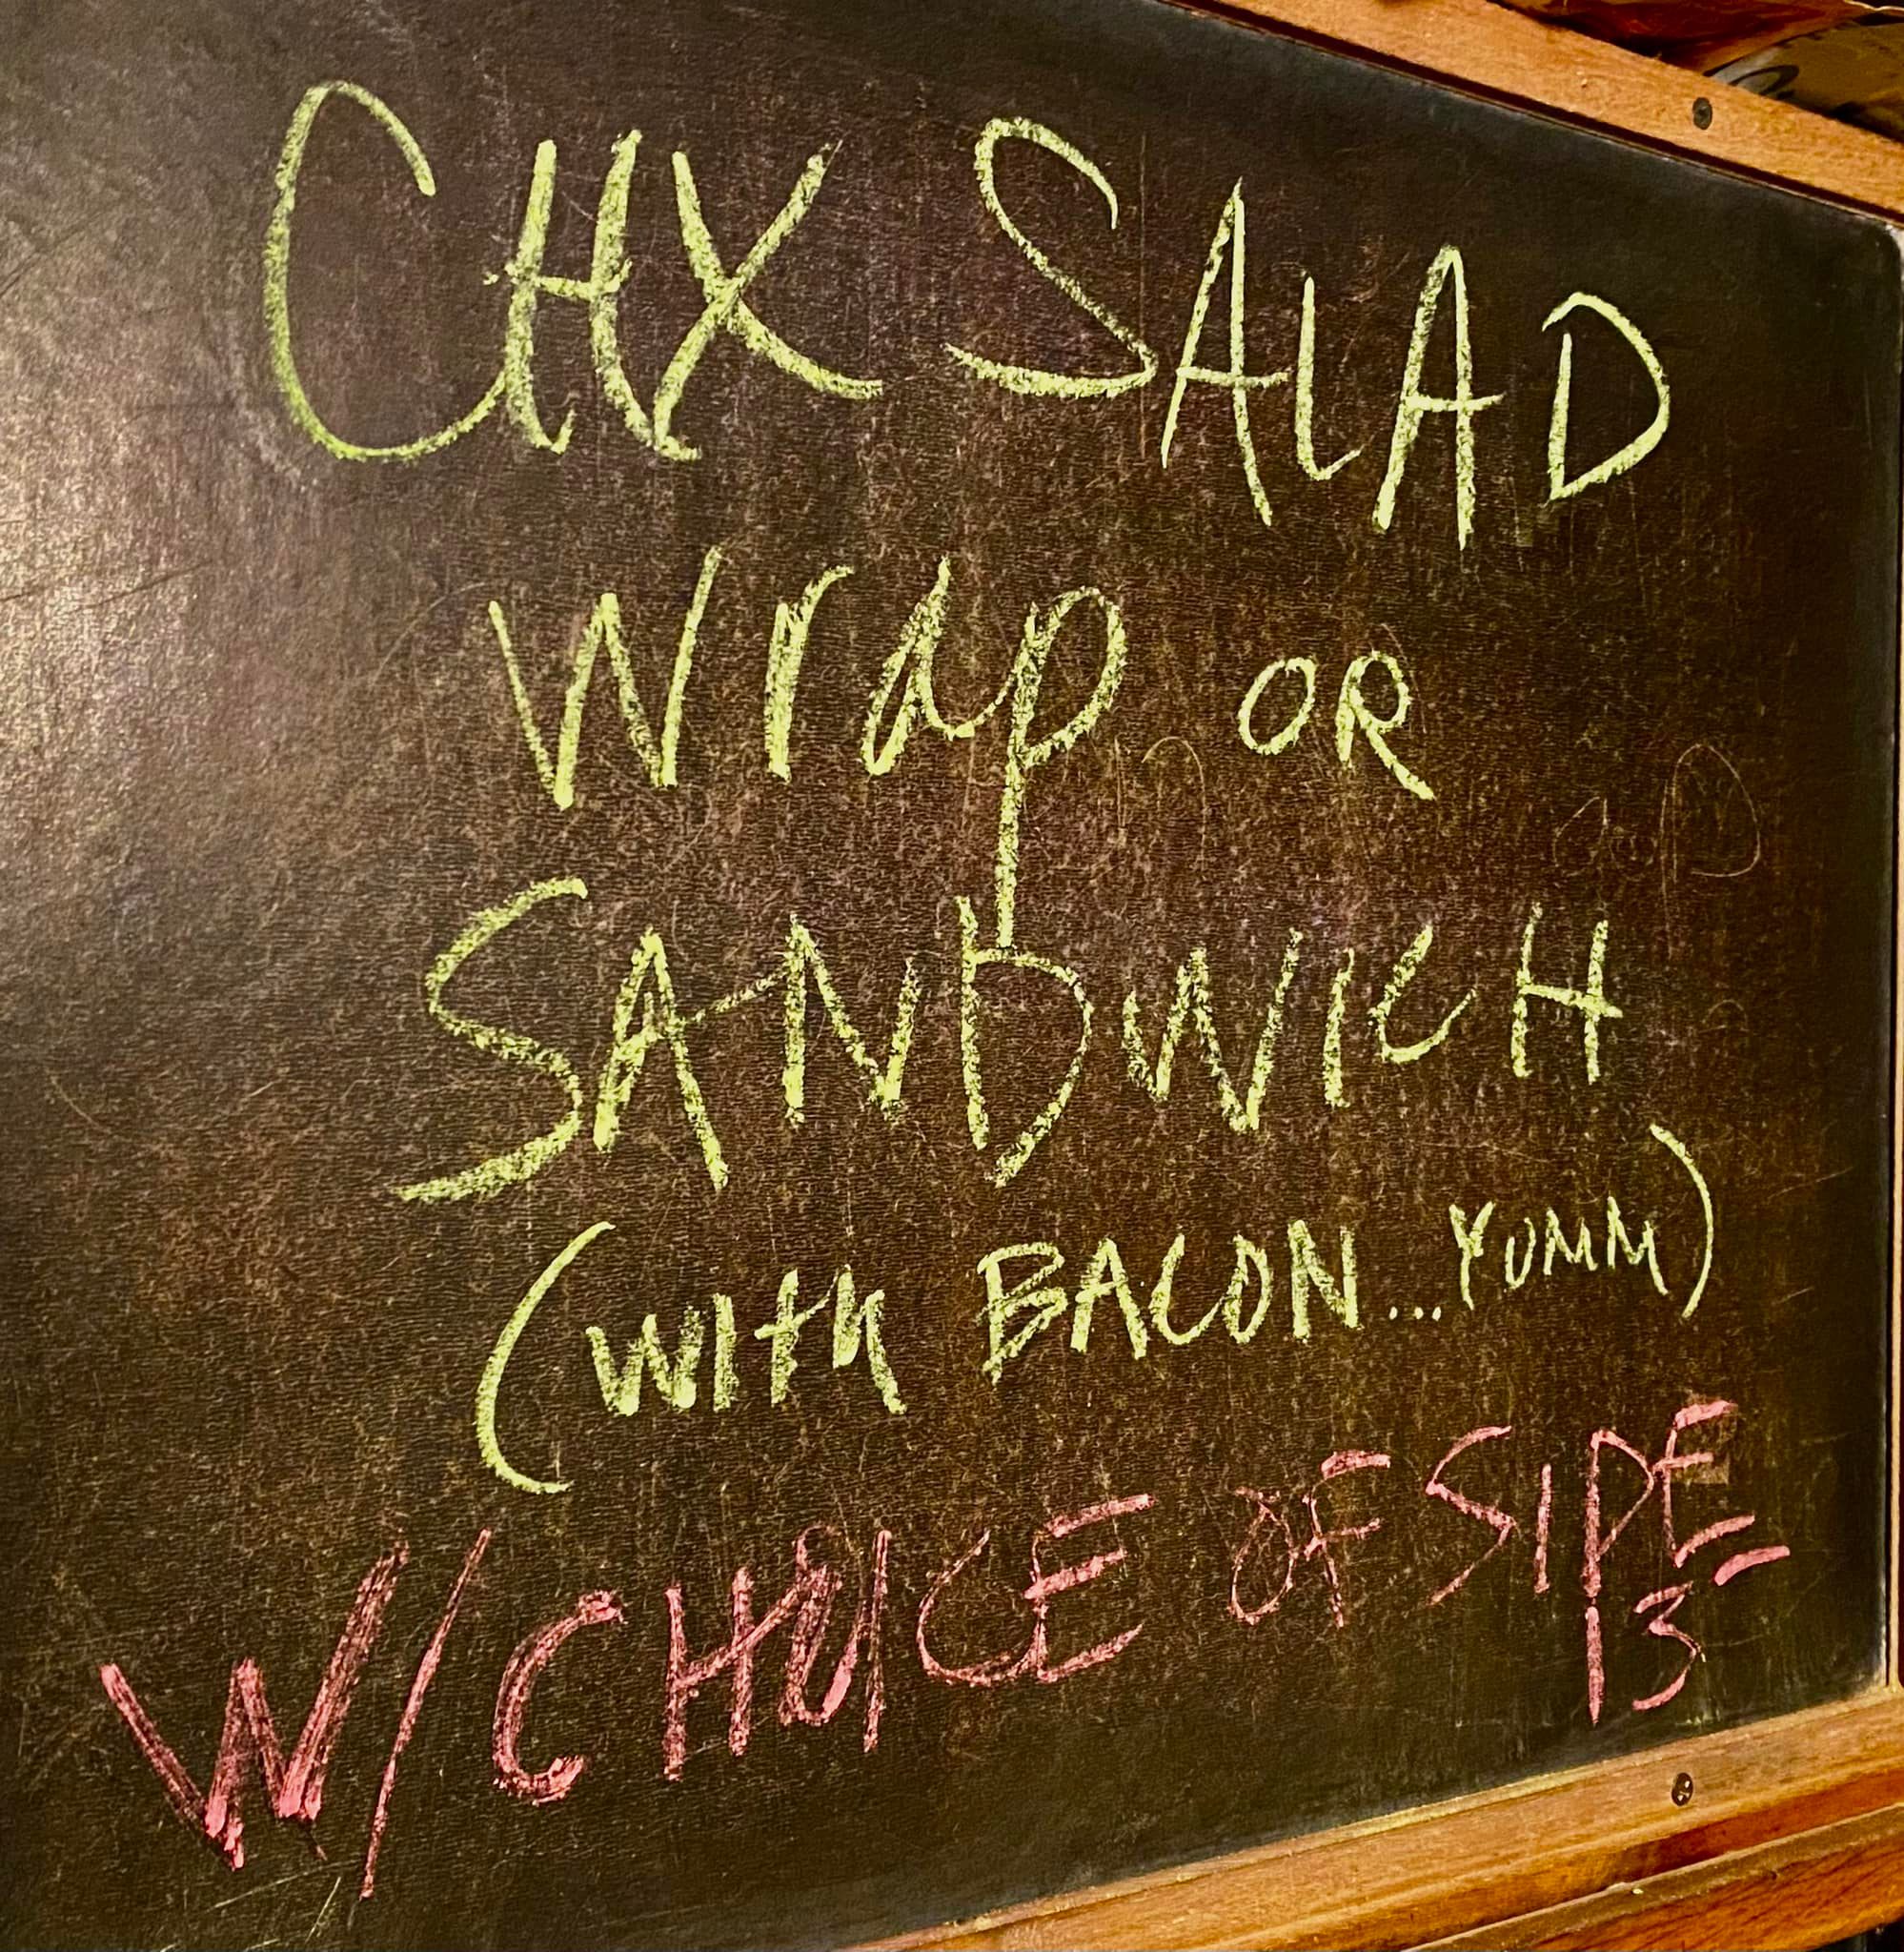 CHX SALAD
Wrap OR
SANDWICH
(with BACON... YUMM)
W/ CHOICE OF SIDE
13